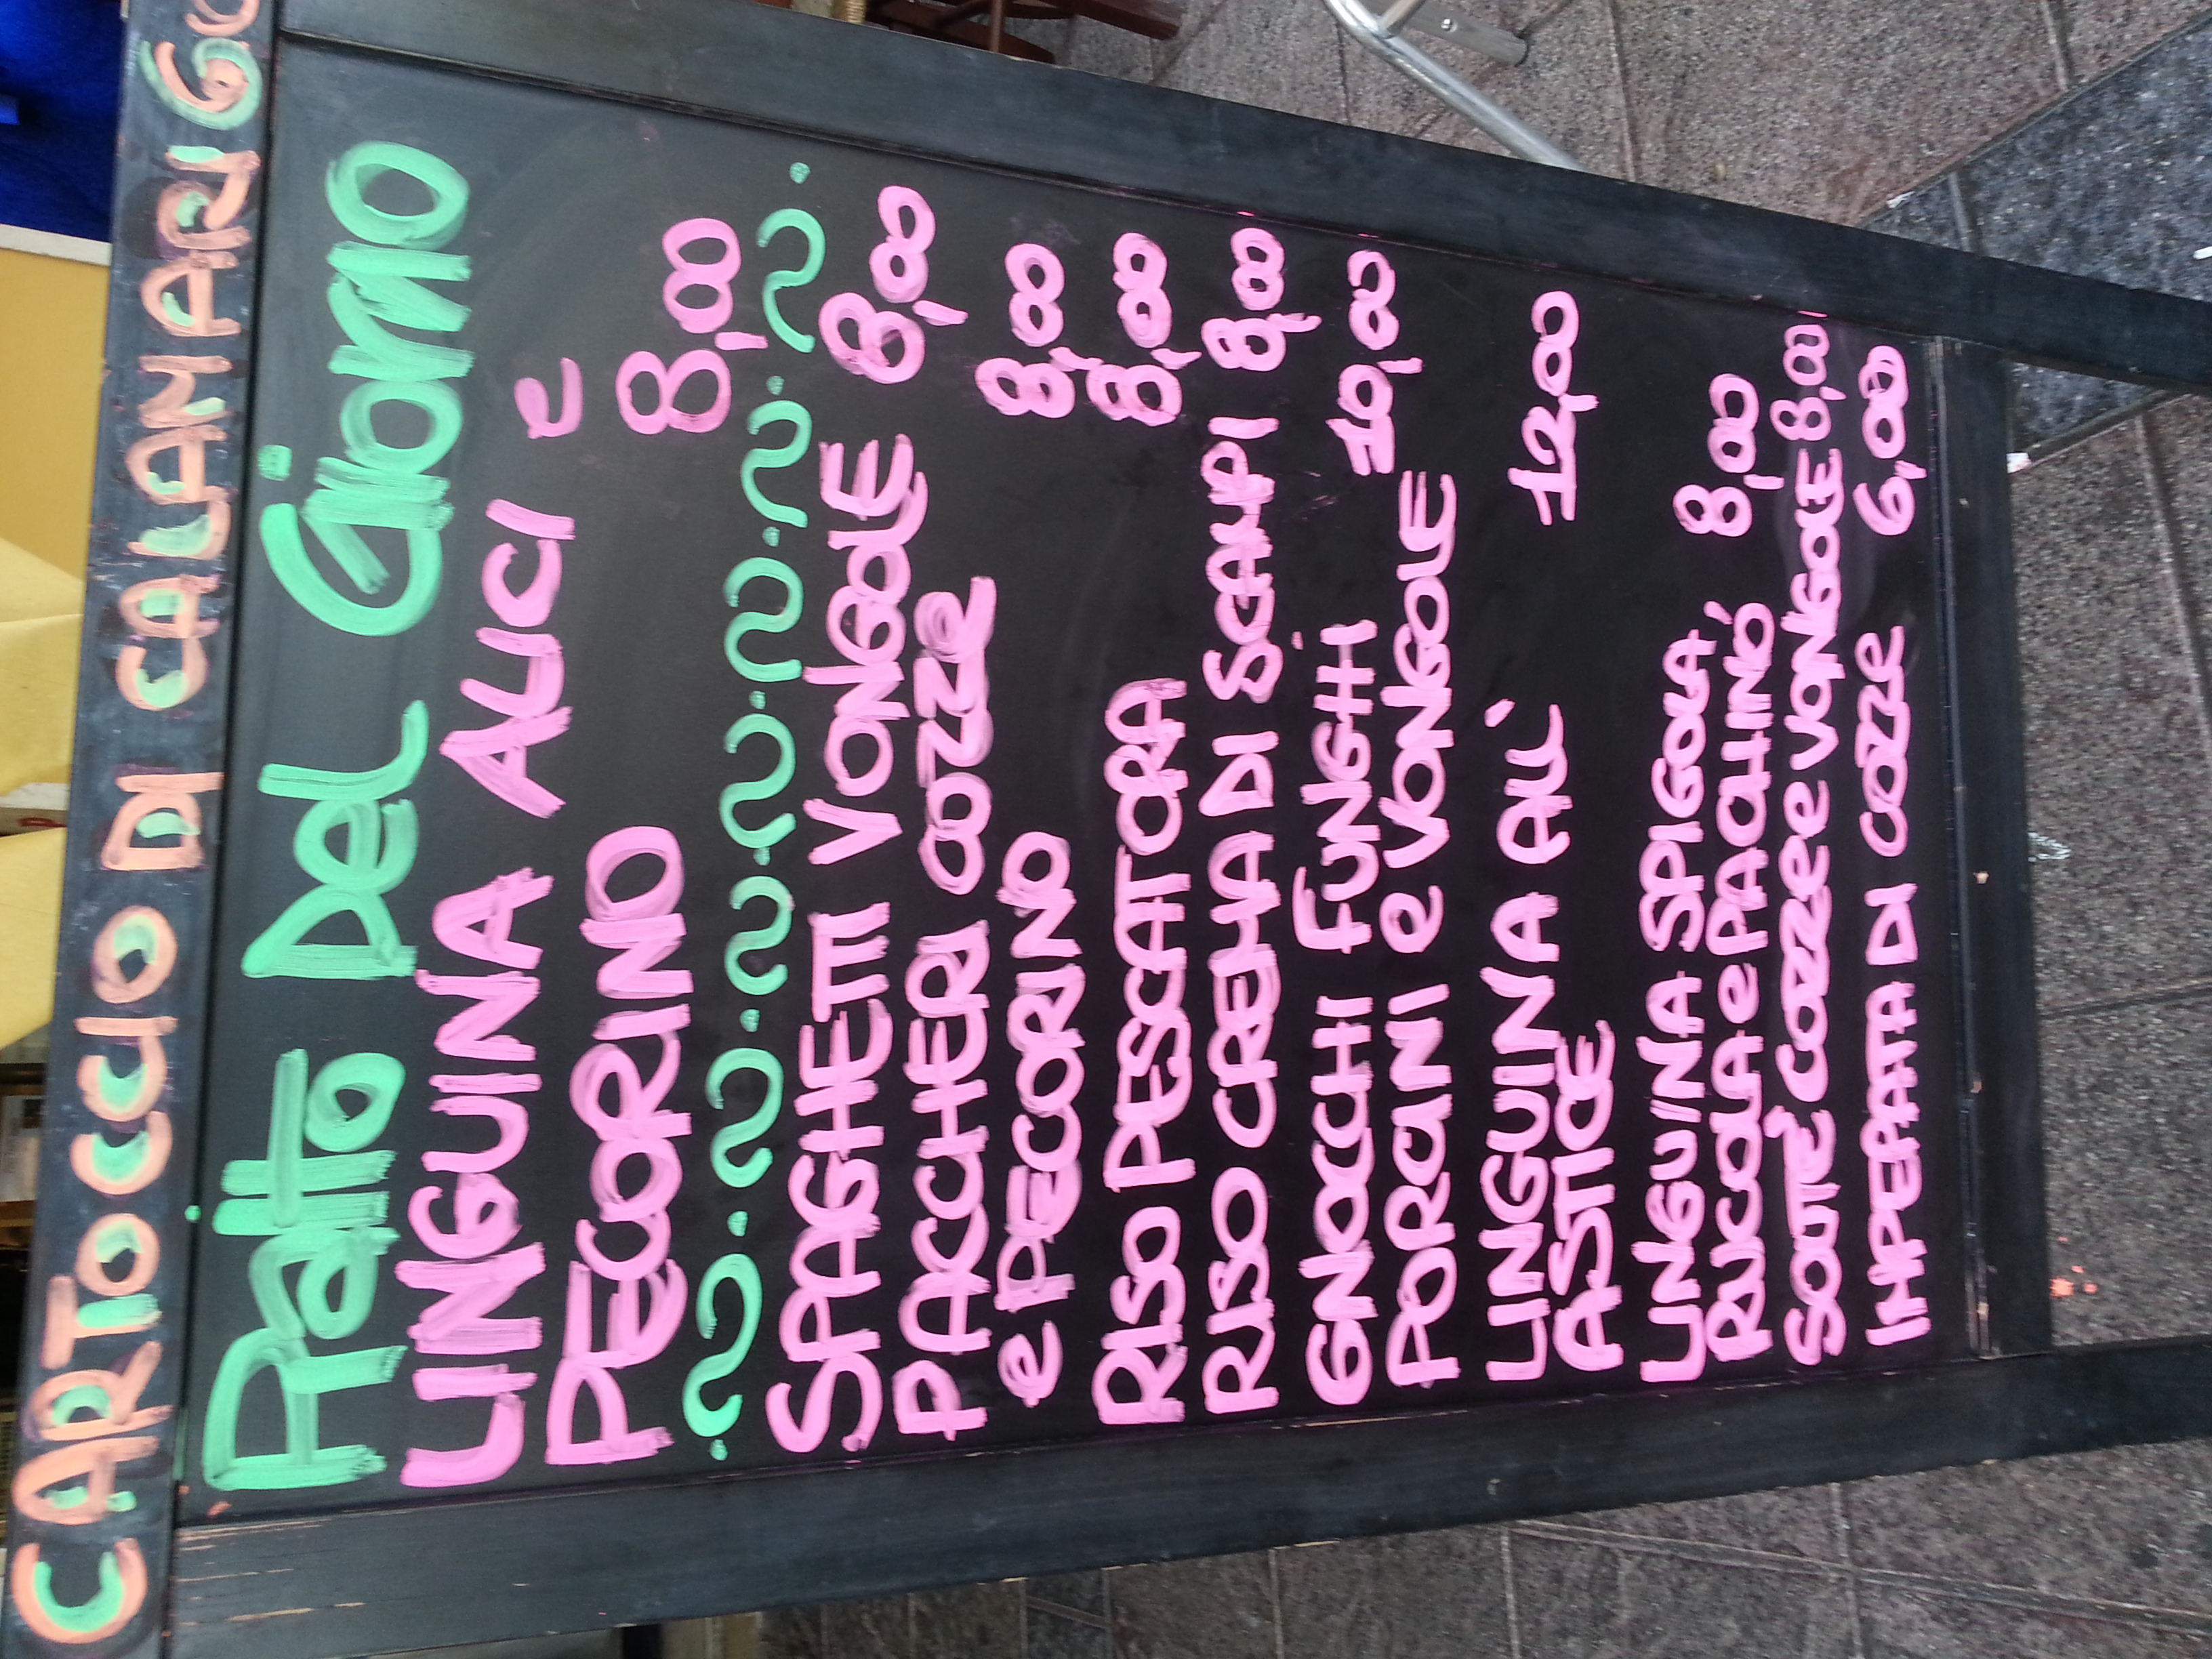 CARTOCCIO DI CALAMARI
Piatto Del Giorno
LINGUINA ALICI e
PECORINO 8,00
SPAGHETTI VONGOLE 8,00
PACCHERI COZZE
e PECORINO 8,00
RISO PESCATORA 8,00
RISO CREMA DI SCAMPI 8,00
GNOCCHI FUNGHI
PORCINI e VONGOLE 10,00
LINGUINA ALL'
ASTICE 12,00
LINGUINA SPIGOLA,
RUCOLA e PACHINO 8,00
SOUTÉ COZZE e VONGOLE 8,00
IMPEPATA DI COZZE 6,00